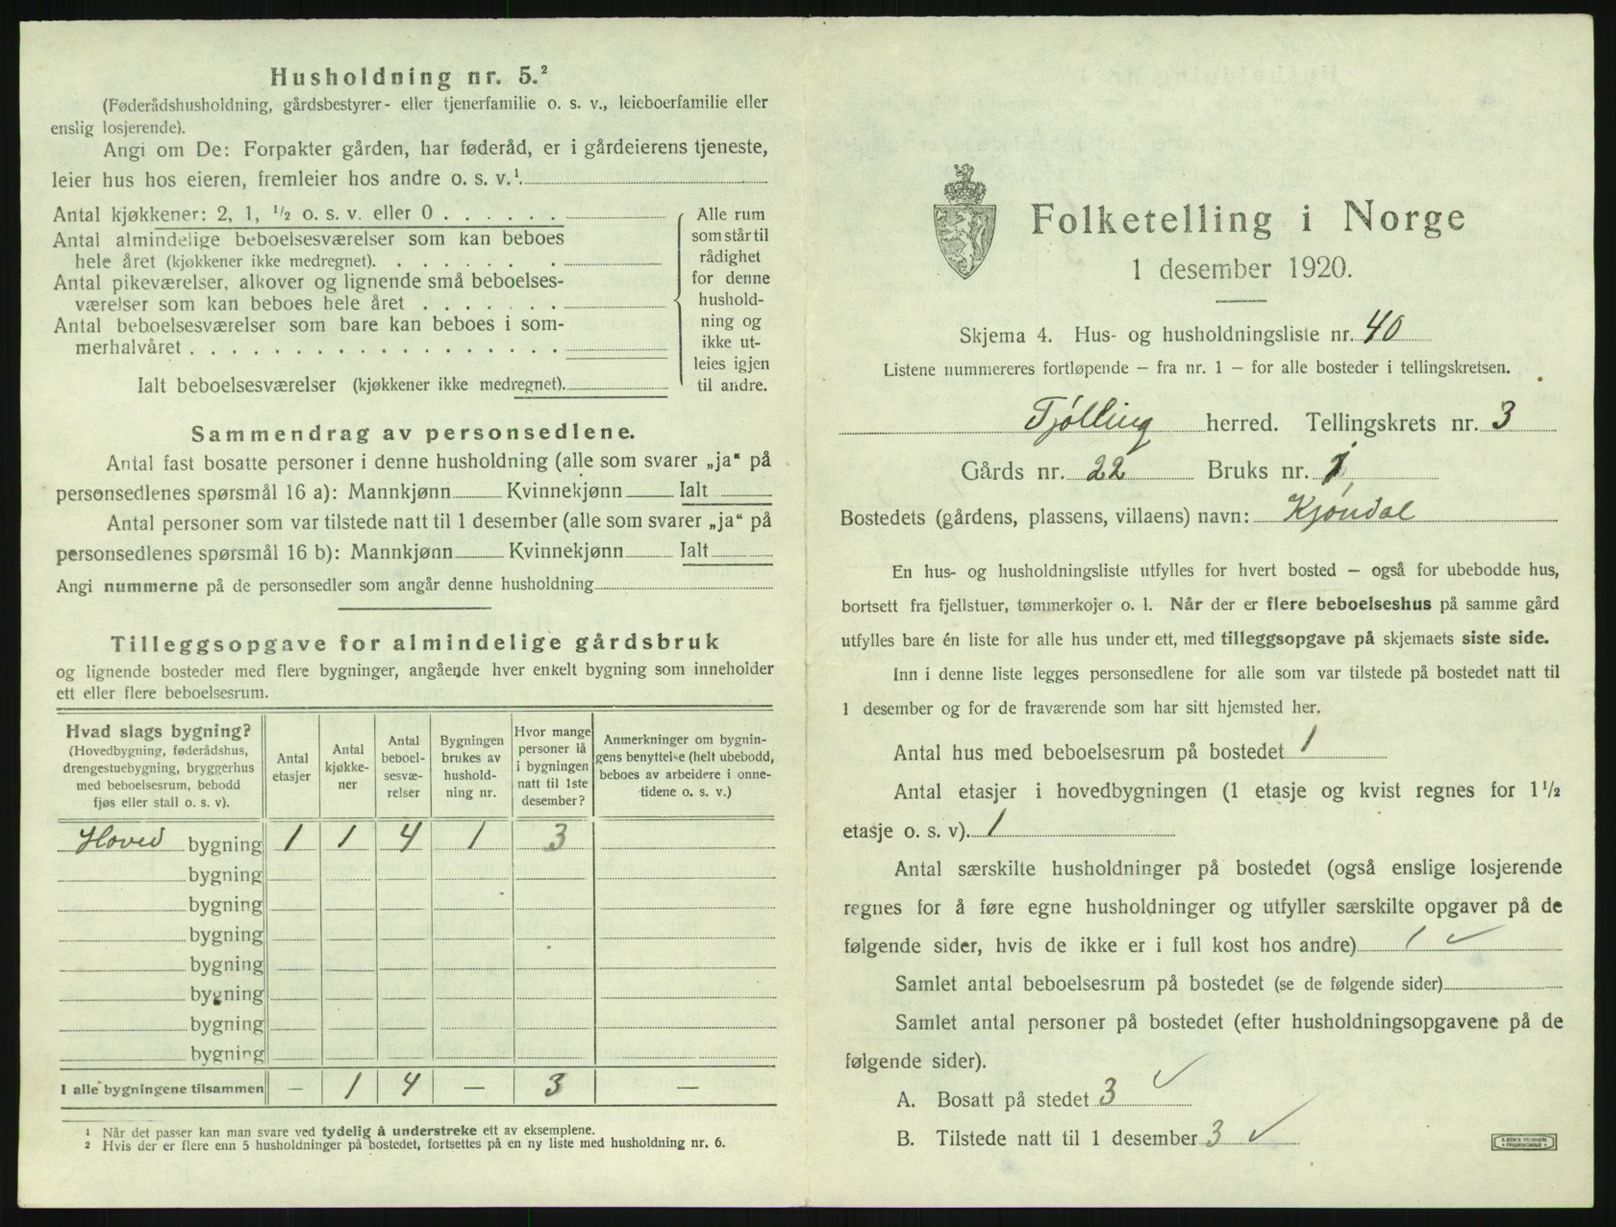 Husholdning nr. 5.²
(Føderådshusholdning, gårdsbestyrer- eller tjenerfamilie o. s. v., leieboerfamilie eller
enslig losjerende).
Angi om De: Forpakter gården, har føderåd, er i gårdeierens tjeneste,
leier hus hos eieren, fremleier hos andre o. s. v.¹
Antal kjøkkener: 2, 1, ½ o. s. v. eller 0 . . . . . .
Antal almindelige beboelsesværelser som kan beboes
hele året (kjøkkener ikke medregnet). . . . . . . .
Antal pikeværelser, alkover og lignende små beboelses-
værelser som kan beboes hele året . . . . . . .
Antal beboelsesværelser som bare kan beboes i som-
merhalvåret . . . . . . . . . . . . . . . . . .
Ialt beboelsesværelser (kjøkkener ikke medregnet).
Alle rum
som står til
rådighet
for denne
hushold-
ning og
ikke ut-
leies igjen
til andre.
Sammendrag av personsedlene.
Antal fast bosatte personer i denne husholdning (alle som svarer „ja“ på
personsedlenes spørsmål 16 a): Mannkjønn Kvinnekjønn Ialt
Antal personer som var tilstede natt til 1 desember (alle som svarer „ja“ på
personsedlenes spørsmål 16 b): Mannkjønn Kvinnekjønn Ialt
Angi nummerne på de personsedler som angår denne husholdning
Tilleggsopgave for almindelige gårdsbruk
og lignende bosteder med flere bygninger, angående hver enkelt bygning som inneholder
ett eller flere beboelsesrum.
Hvad slags bygning?
(Hovedbygning, føderådshus,
drengestuebygning, bryggerhus
med beboelsesrum, bebodd
fjøs eller stall o. s. v).
Antal
etasjer
Antal
kjøkke-
ner
Antal
beboel-
sesvæ-
relser
Bygningen
brukes av
hushold-
ning nr.
Hvor mange
personer lå
i bygningen
natt til 1ste
desember?
Anmerkninger om bygnin-
gens benyttelse (helt ubebodd,
beboes av arbeidere i onne-
tidene o. s. v.)
Hoved bygning 1 1 4 1 3
bygning
bygning
bygning
bygning
bygning
bygning
bygning
I alle bygningene tilsammen — 1 4 — 3 —
¹ Når det passer kan man svare ved tydelig å understreke ett av eksemplene.
² Hvis der er flere enn 5 husholdninger på bostedet, fortsettes på en ny liste med husholdning nr. 6.
Folketelling i Norge
1 desember 1920.
Skjema 4. Hus- og husholdningsliste nr. 40
Listene nummereres fortløpende — fra nr. 1 — for alle bosteder i tellingskretsen.
Tjølling herred. Tellingskrets nr. 3
Gårds nr. 22 Bruks nr. 1
Bostedets (gårdens, plassens, villaens) navn: Kjøndal
En hus- og husholdningsliste utfylles for hvert bosted — også for ubebodde hus,
bortsett fra fjellstuer, tømmerkojer o. l. Når der er flere beboelseshus på samme gård
utfylles bare én liste for alle hus under ett, med tilleggsopgave på skjemaets siste side.
Inn i denne liste legges personsedlene for alle som var tilstede på bostedet natt til
1 desember og for de fraværende som har sitt hjemsted her.
Antal hus med beboelsesrum på bostedet 1
Antal etasjer i hovedbygningen (1 etasje og kvist regnes for 1½
etasje o. s. v). 1
Antal særskilte husholdninger på bostedet (også enslige losjerende
regnes for å føre egne husholdninger og utfyller særskilte opgaver på de
følgende sider, hvis de ikke er i full kost hos andre) 1 ✓
Samlet antal beboelsesrum på bostedet (se de følgende sider)
Samlet antal personer på bostedet (efter husholdningsopgavene på de
følgende sider).
A. Bosatt på stedet 3 ✓
B. Tilstede natt til 1 desember 3 ✓